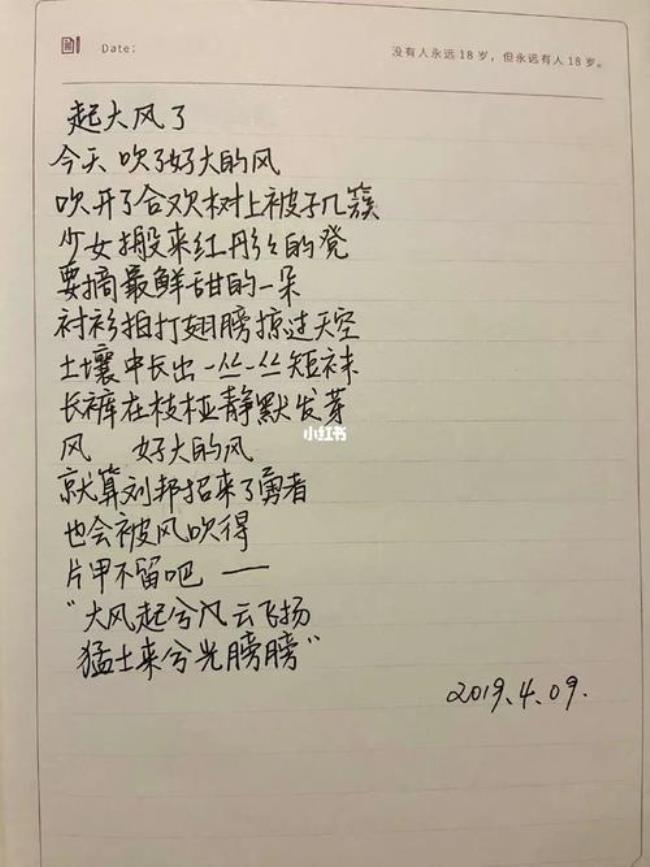 Date:
没有人永远18岁，但永远有人18岁。
起大风了
今天吹了好大的风
吹开了合欢树上被子几簇
少女搬来红彤々的凳
要摘最鲜甜的一朵
衬衫拍打翅膀掠过天空
土壤中长出一丛一丛短袜
长裤在枝桠静默发芽
风 好大的风
就算刘邦招来了勇者
也会被风吹得
片甲不留吧 ——
“大风起兮风云飞扬
猛士来兮光膀膀”
2019.4.09.
小红书